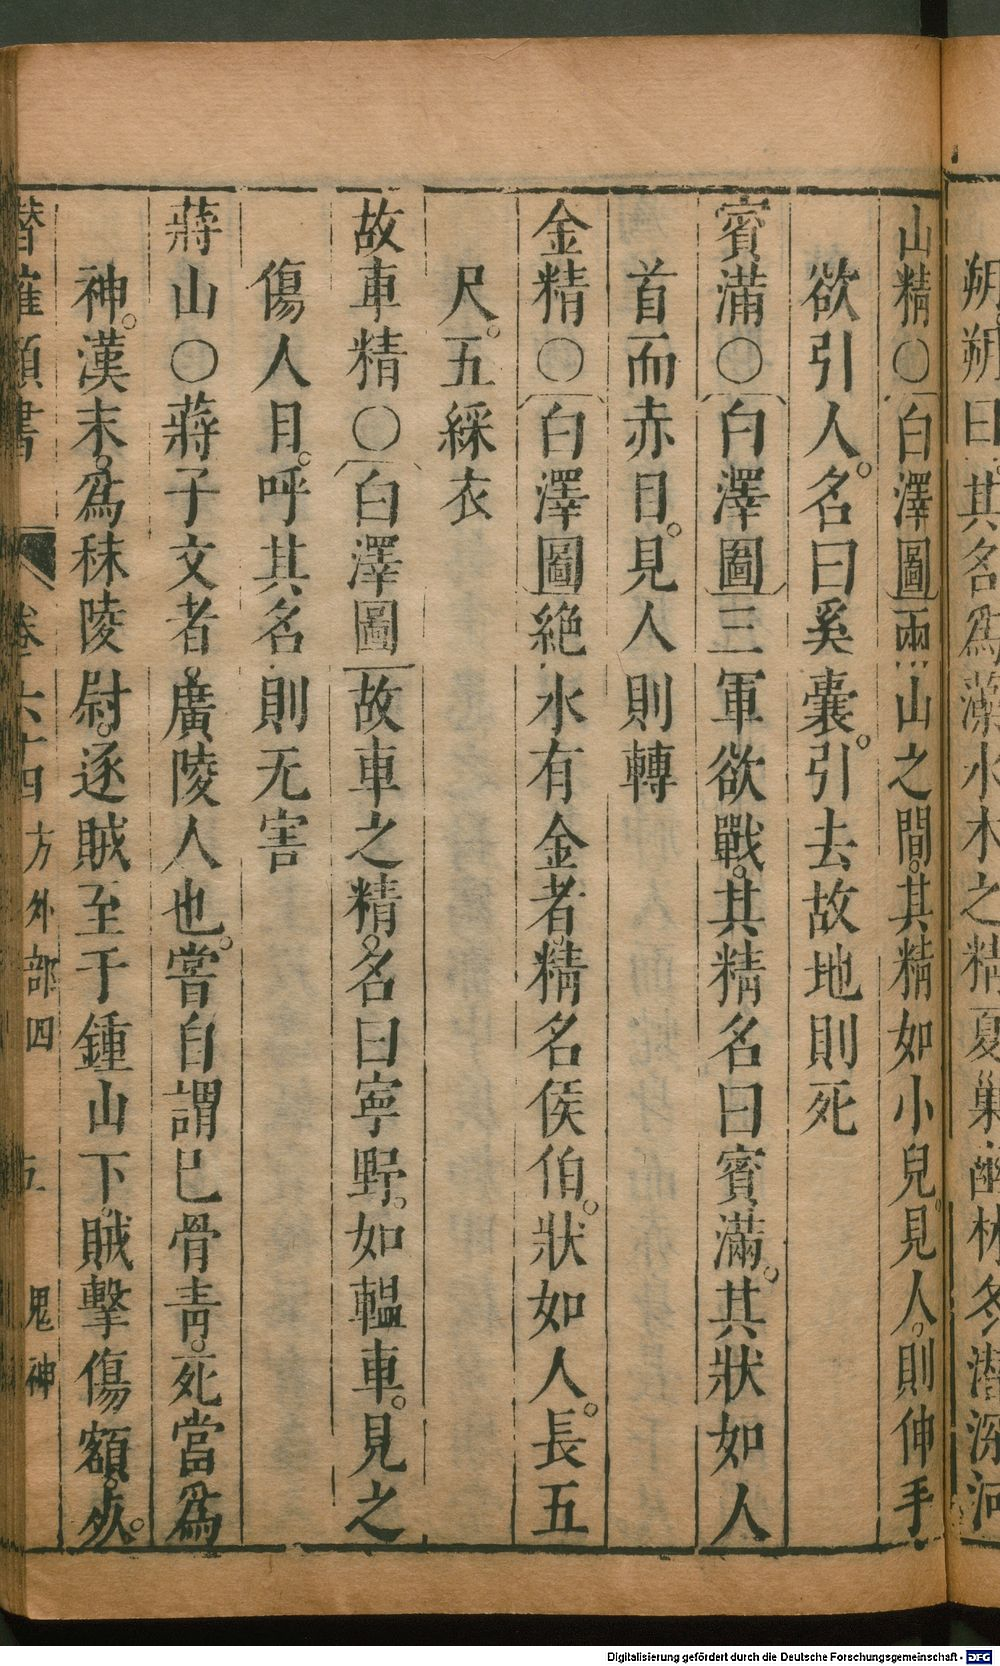 朔朔曰其名爲藻水木之精夏巢幽林冬潛深河
山精○白澤圖兩山之間。其精如小兒。見人。則伸手
欲引人。名曰奚囊。引去故地則死
賓滿○白澤圖三軍欲戰。其精名曰賓滿。其狀如人
首而赤目。見人則轉
金精○白澤圖絕水有金者。精名侯伯。狀如人。長五
尺。五綵衣
故車精○白澤圖故車之精。名曰寧野。如轀車。見之
傷人目。呼其名則无害
蔣山○蔣子文者。廣陵人也。嘗自謂己骨青。死當爲
神。漢末。爲秣陵尉。逐賊至于鍾山下。賊擊傷額。
潛確類書 卷六十四 方外部四 五 鬼神
Digitalisierung gefördert durch die Deutsche Forschungsgemeinschaft - DFG